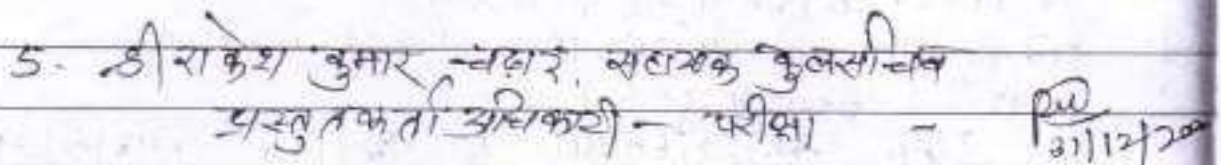 5. श्री राकेश कुमार चढ़ार, सहायक कुलसचिव
प्रस्तुतकर्ता अधिकारी - परीक्षा -
31/12/20